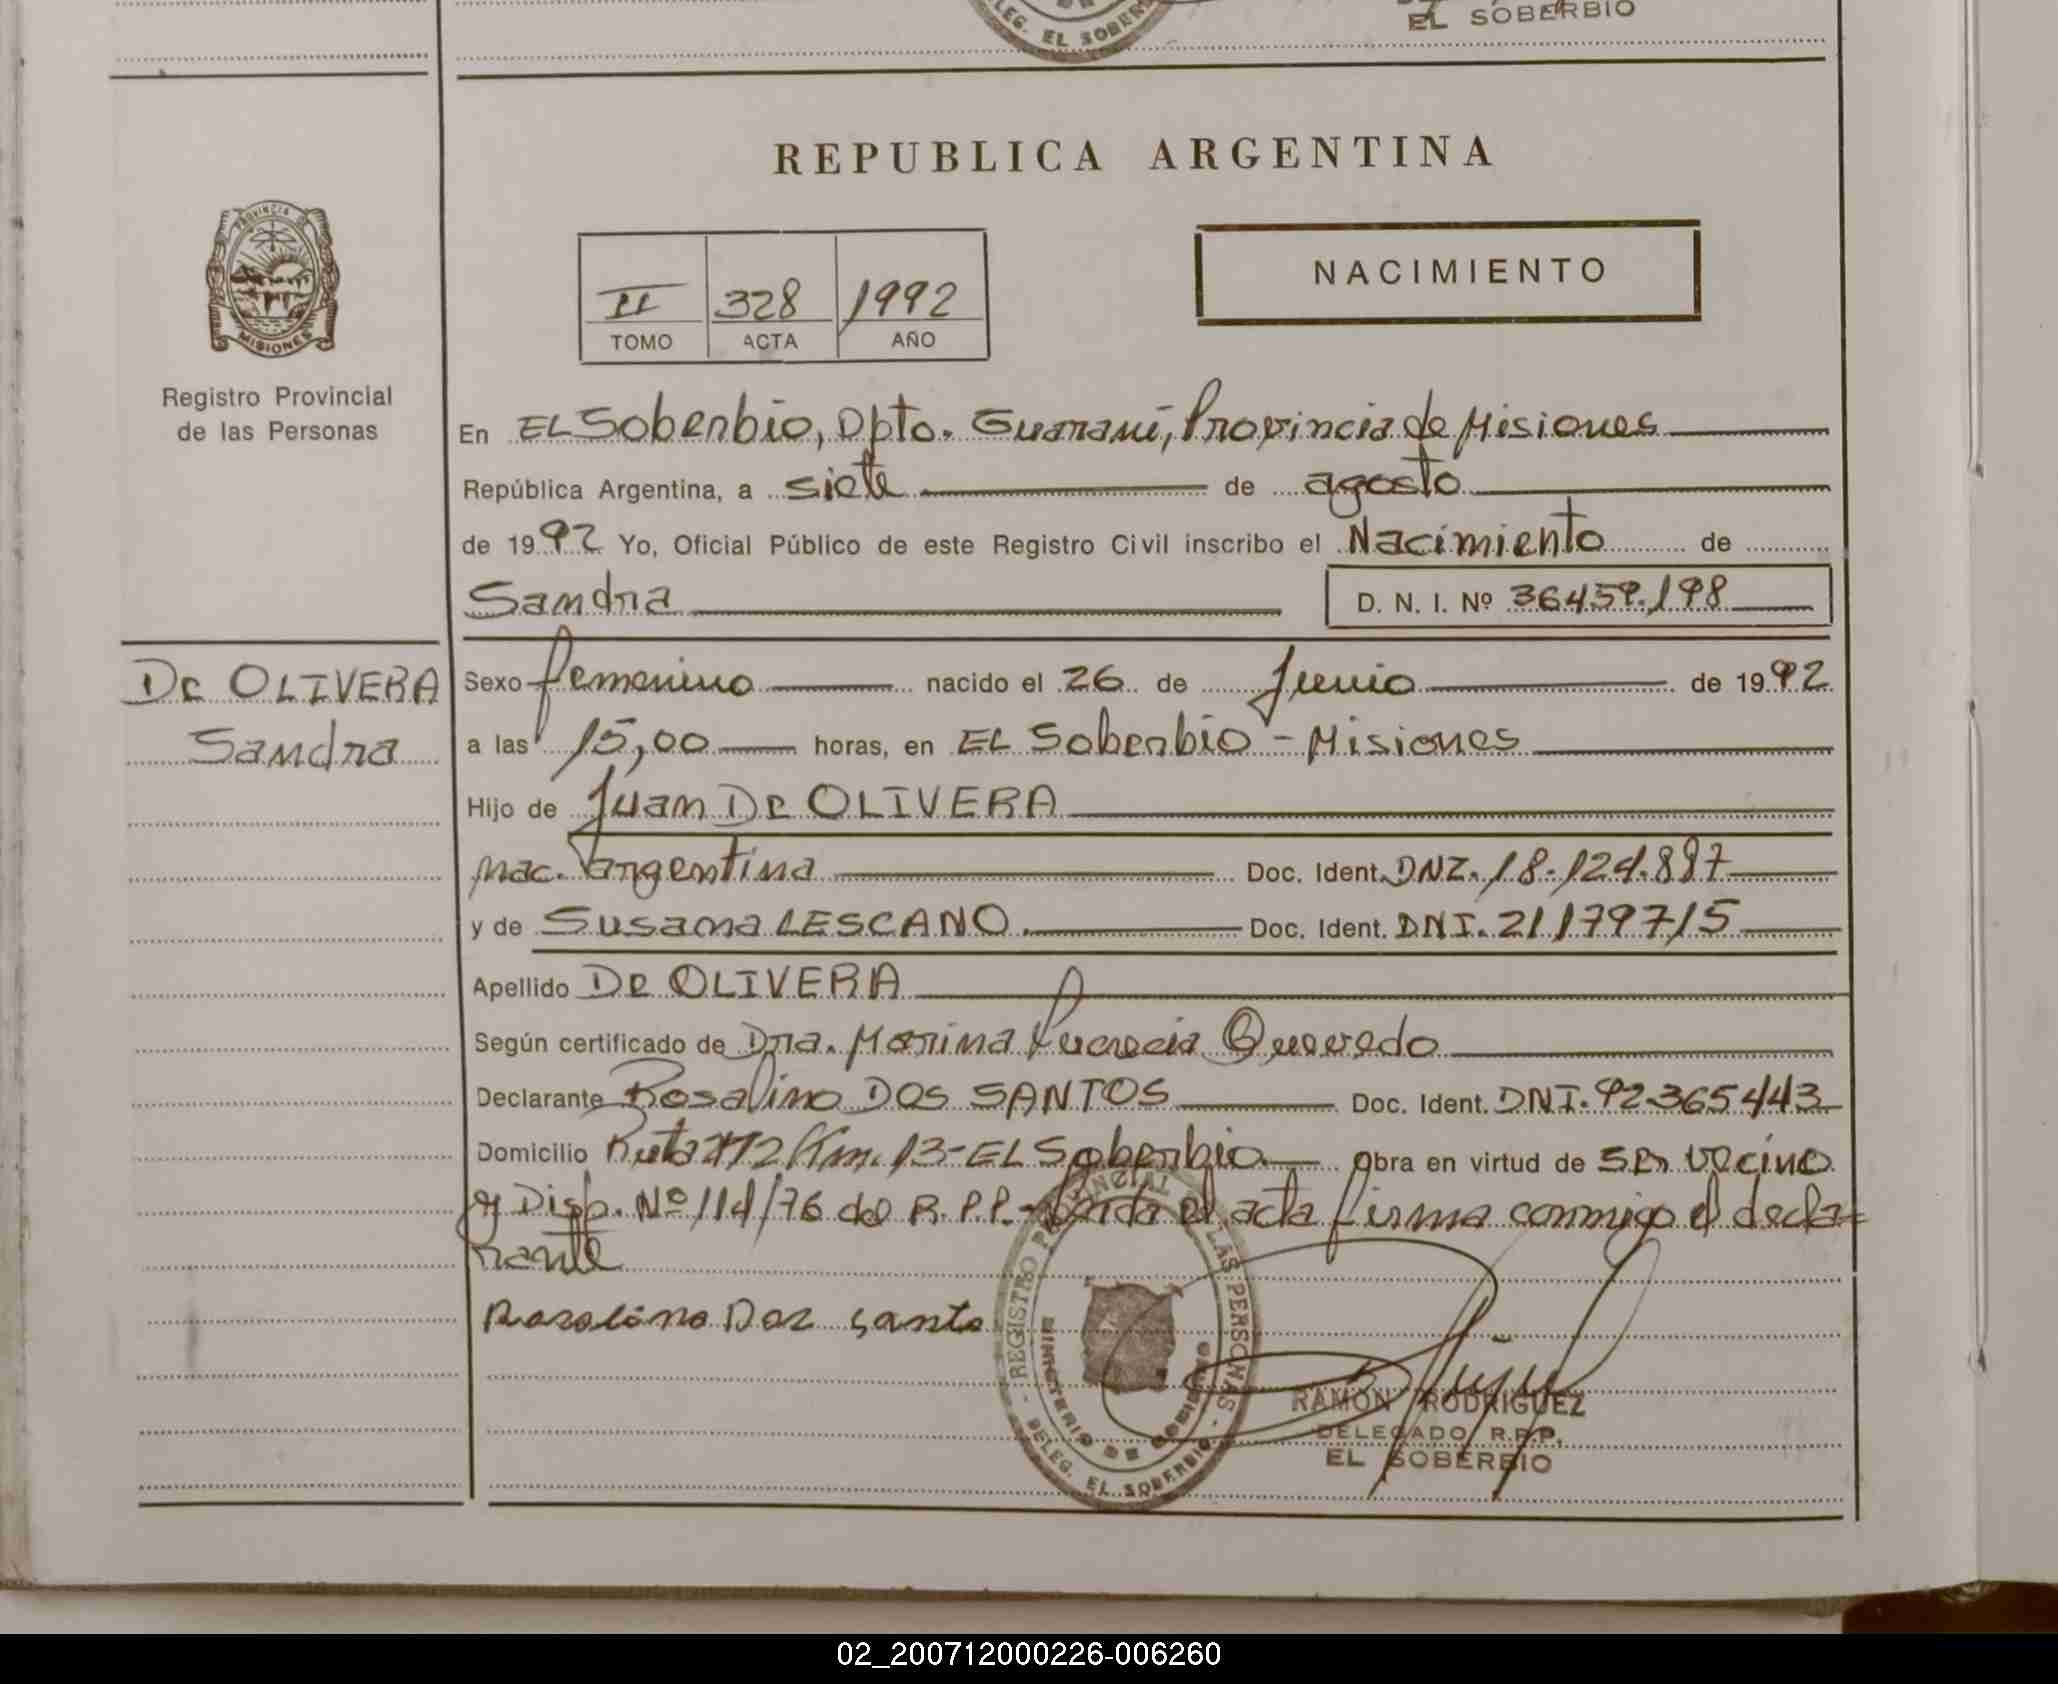 DELEG. EL SOBERBIO
EL SOBERBIO
REPUBLICA ARGENTINA
PROVINCIA DE
MISIONES
Registro Provincial
de las Personas
II 328 1992
TOMO ACTA AÑO
NACIMIENTO
En EL Soberbio, Dpto. Guaraní, Provincia de Misiones
República Argentina, a siete de agosto
de 1992 Yo, Oficial Público de este Registro Civil inscribo el Nacimiento de
Sandra D. N. I. Nº 36459.198
De OLIVERA
Sandra
Sexo femenino nacido el 26 de Junio de 1992
a las 15,00 horas, en EL Soberbio - Misiones
Hijo de Juan De OLIVERA
nac. argentina Doc. Ident. DNI. 18.124.887
y de Susana LESCANO. Doc. Ident. DNI. 21179715
Apellido De OLIVERA
Según certificado de Dra. Marina Lucrecia Quevedo
Declarante Rosalino DOS SANTOS Doc. Ident. DNI. 92365443
Domicilio Ruta 212 Km. 13-EL Soberbio Obra en virtud de ser vecino
y Disp. Nº 114/76 del R.P.P.- Leida el acta firma conmigo el decla=
rante
Rosalino Dos Santo
REGISTRO PROVINCIAL DE LAS PERSONAS - DELEG. EL SOBERBIO -
MINISTERIO DE GOBIERNO
RAMON RODRIGUEZ
DELEGADO R.P.P.
EL SOBERBIO
02_200712000226-006260